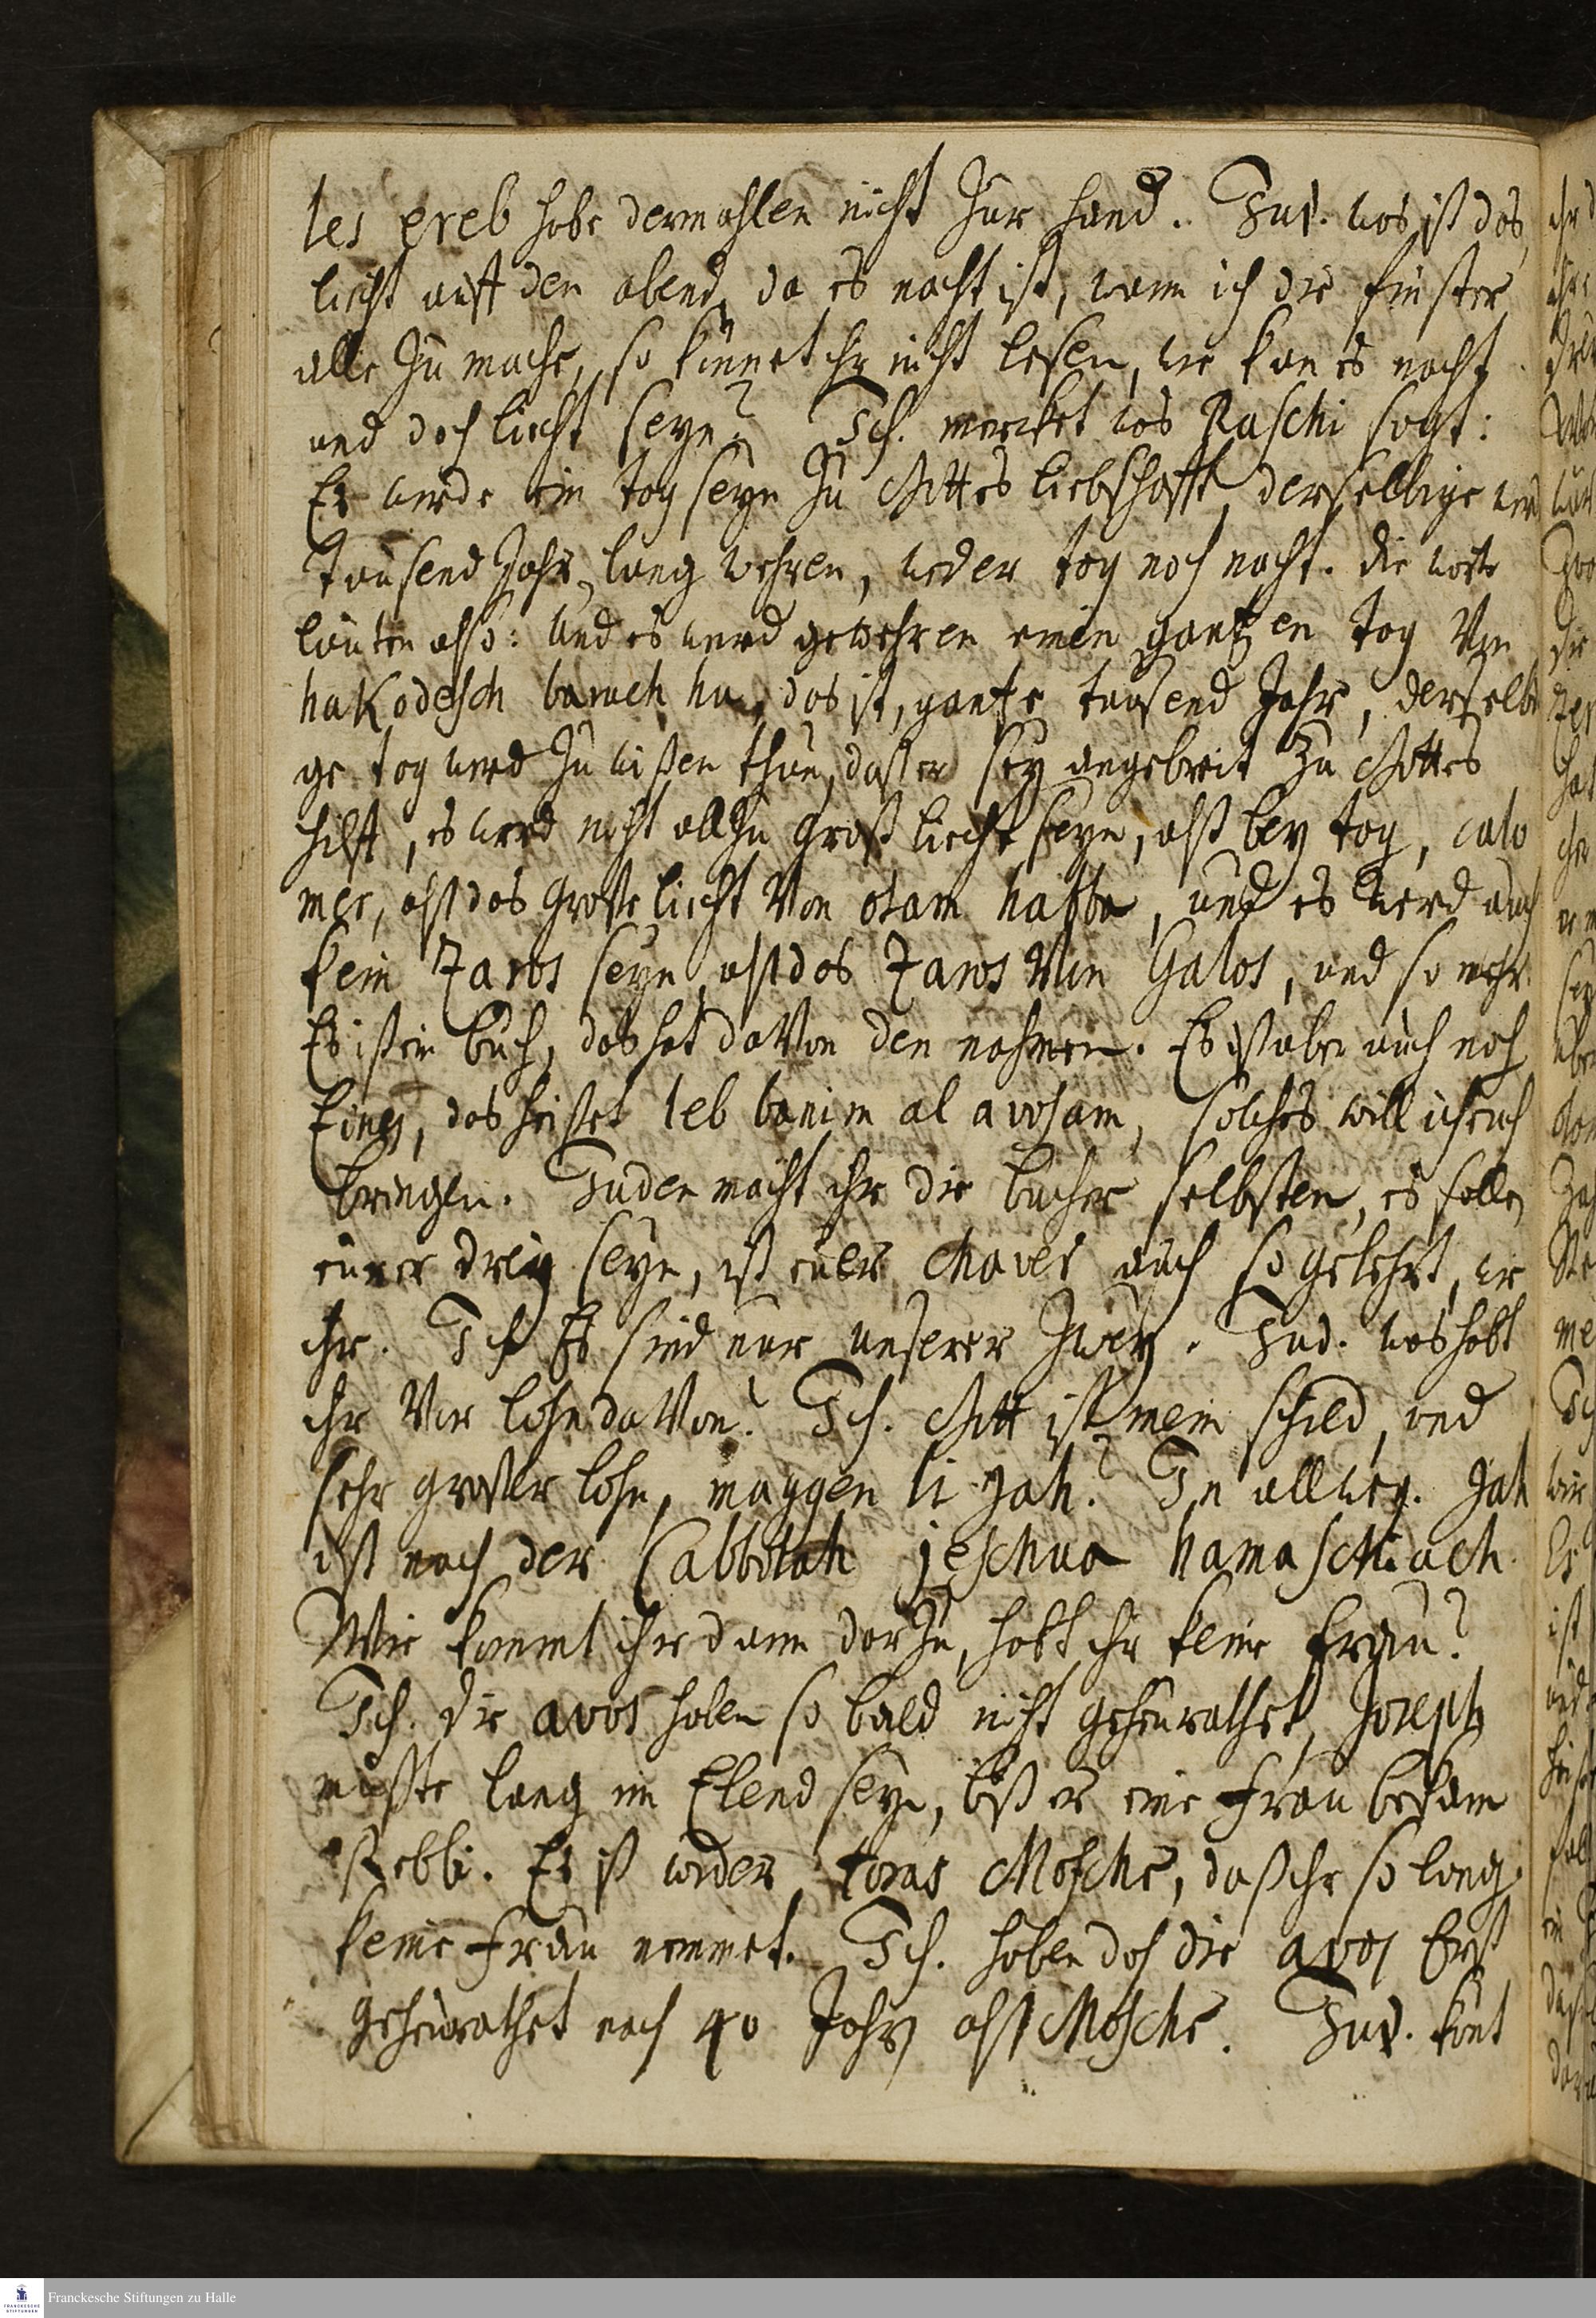 les ereb habe dermahlen nicht zur hand. Jud. was ist das
liecht auff den abend, da es nacht ist, wann ich die finster
alle zu mache, so könnet ihr nicht lesen, wie kan es nacht
und doch liecht seyn? Ich. mercket was Raschi sagt:
Es werde ein tag seyn zu Gottes liebschafft, dersellbige werd
tausend Jahr lang wehren, weder tag noch nacht. die worte
lauten also: Und es werd gewehren einen gantzen tag Von
haKodesch baruch hu, das ist, gantze tausend Jahr, derselbi
ge tag werd zu wißen thun, daß er sey angebreit zu Gottes
hilff, es werd nicht allzu groß liecht seyn, alß bey tag, calo
mer, alß das große liecht Von olam habba, und es werd auch
kein Zaros seyn, alß das Zaros Von Galos, und so mehr.
Es ist ein buch, das hat daVon den nahmen. Es ist aber auch noch
Eines, das heißet leb banim al avosam, solches will ich euch
bringen. Juden macht ihr die bücher selbsten, es sollen
eurer drey seyn, ist euer Chaver auch so gelehrt, wie
ihr. Ich Es sind nur unserer zwey. Jud. was habt
ihr Vor lohn daVon? Ich. Gott ist mein schild, und
sehr großer lohn, maggen li Jah? In allweg. Jah
ist nach der Cabbolah jeschua hamaschiach.
Wie kommt ihr dann darzu, habt ihr keine frau?
Ich. die avos haben so bald nicht geheurathet, Joseph
muste lang im Elend seyn, biß er eine frau bekam
Rebbi. Es ist wider toras Mosche, daß ihr so lang
keine frau nemmet. Ich. haben doch die avos Erst
geheurathet nach 40 Jahr alß Mosche. Jud. könt
Franckesche Stiftungen zu Halle